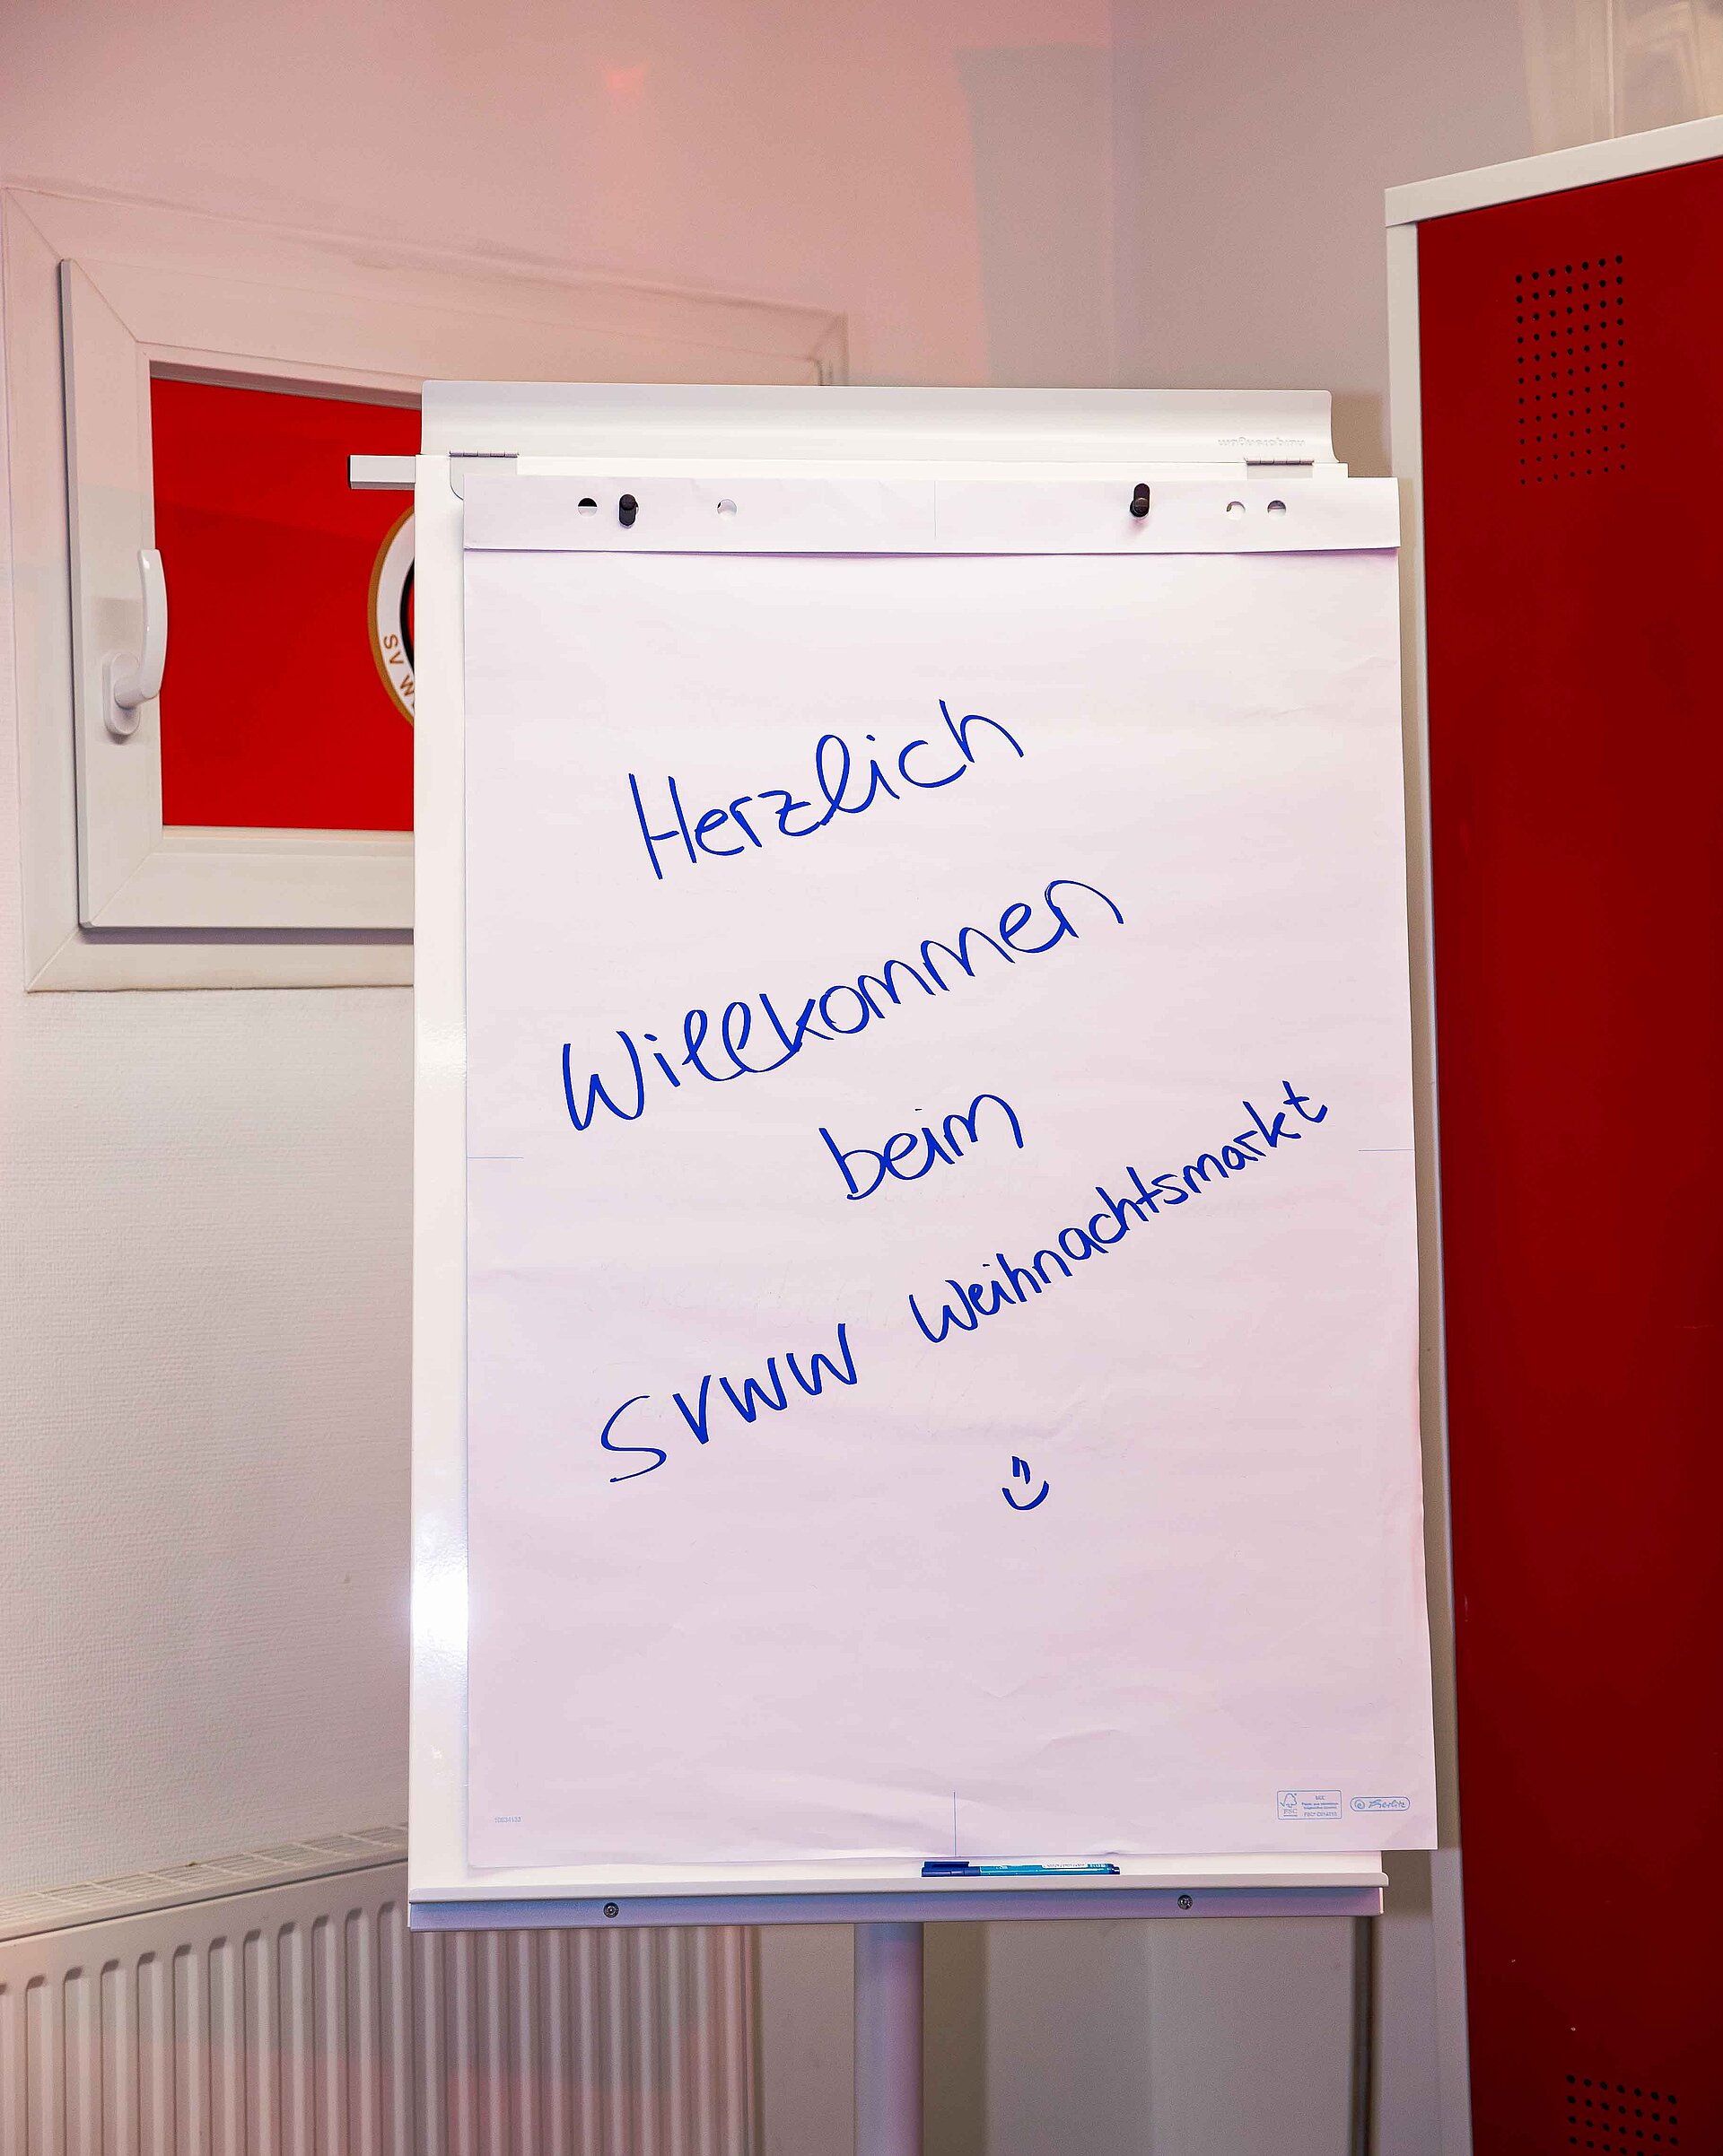 SV W
Herzlich
Willkommen
beim
SVWW Weihnachtsmarkt
FSC
Herlitz